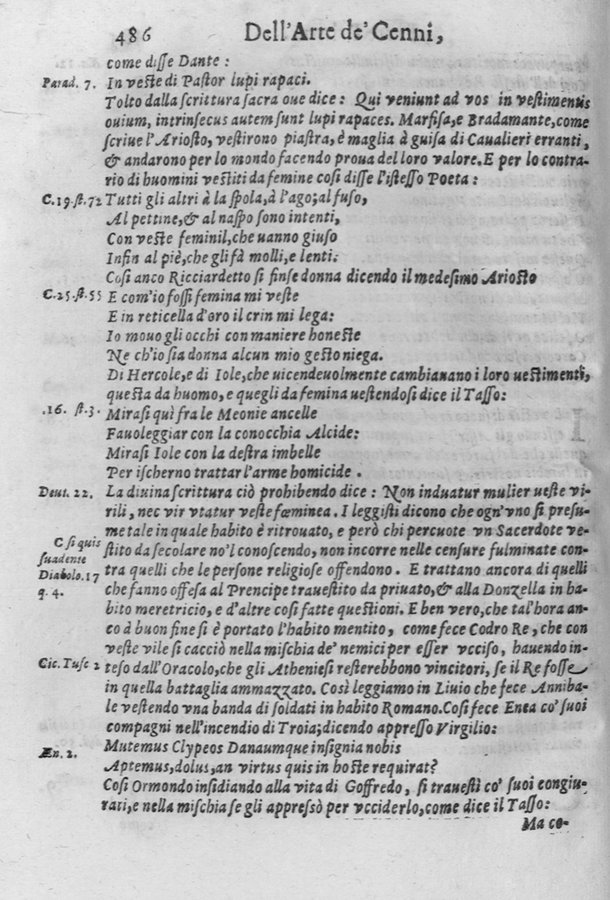 486 Dell'Arte de' Cenni,
come disse Dante:
Parad. 7. In veste di Pastor lupi rapaci.
Tolto dalla scrittura sacra oue dice: Qui veniunt ad vos in vestimentis
ouium, intrinsecus autem sunt lupi rapaces. Marfisa, e Bradamante, come
scriue l'Ariosto, vestirono piastra, è maglia à guisa di Caualieri erranti,
& andarono per lo mondo facendo proua del loro valore. E per lo contra-
rio di huomini vestiti da femine cosi disse l'istesso Poeta:
C.19.st.72 Tutti gli altri à la spola, à l'ago; al fuso,
Al pettine, & al naspo sono intenti,
Con veste feminil, che uanno giuso
Infin al piè, che gli fà molli, e lenti.
Cosi anco Ricciardetto si finse donna dicendo il medesimo Ariosto
C.25.st.55 E com'io fossi femina mi veste
E in reticella d'oro il crin mi lega:
Io mouo gli occhi con maniere honeste
Ne ch'io sia donna alcun mio gesto niega.
Di Hercole, e di Iole, che uicendeuolmente cambiauano i loro uestimenti,
questa da huomo, e quegli da femina uestendosi dice il Tasso:
.16. st.3. Mirasi quì fra le Meonie ancelle
Fauoleggiar con la conocchia Alcide:
Mirasi Iole con la destra imbelle
Per ischerno trattar l'arme homicide.
Deut. 22. La diuina scrittura ciò prohibendo dice: Non induatur mulier ueste vi-
rili, nec vir vtatur veste fœminea. I leggisti dicono che ogn'vno si presu-
me tale in quale habito è ritrouato, e però chi percuote vn Sacerdote ve-
C si quis stito da secolare no'l conoscendo, non incorre nelle censure fulminate con-
suadente tra quelli che le persone religiose offendono. E trattano ancora di quelli
Diabolo.17 che fanno offesa al Prencipe trauestito da priuato, & alla Donzella in ha-
q. 4. bito meretricio, e d'altre cosi fatte questioni. E ben vero, che tal'hora an-
co à buon fine si è portato l'habito mentito, come fece Codro Re, che con
veste vile si cacciò nella mischia de' nemici per esser vcciso, hauendo in-
Cic. Tusc 2 teso dall'Oracolo, che gli Atheniesi resterebbono vincitori, se il Re fosse
in quella battaglia ammazzato. Così leggiamo in Liuio che fece Anniba-
le vestendo vna banda di soldati in habito Romano. Cosi fece Enea co' suoi
compagni nell'incendio di Troia; dicendo appresso Virgilio:
Mutemus Clypeos Danaumque insignia nobis
Æn. 2. Aptemus, dolus, an virtus quis in hoste requirat?
Cosi Ormondo insidiando alla vita di Goffredo, si trauestì co' suoi congiu-
rati, e nella mischia se gli appressò per vcciderlo, come dice il Tasso:
Ma co-